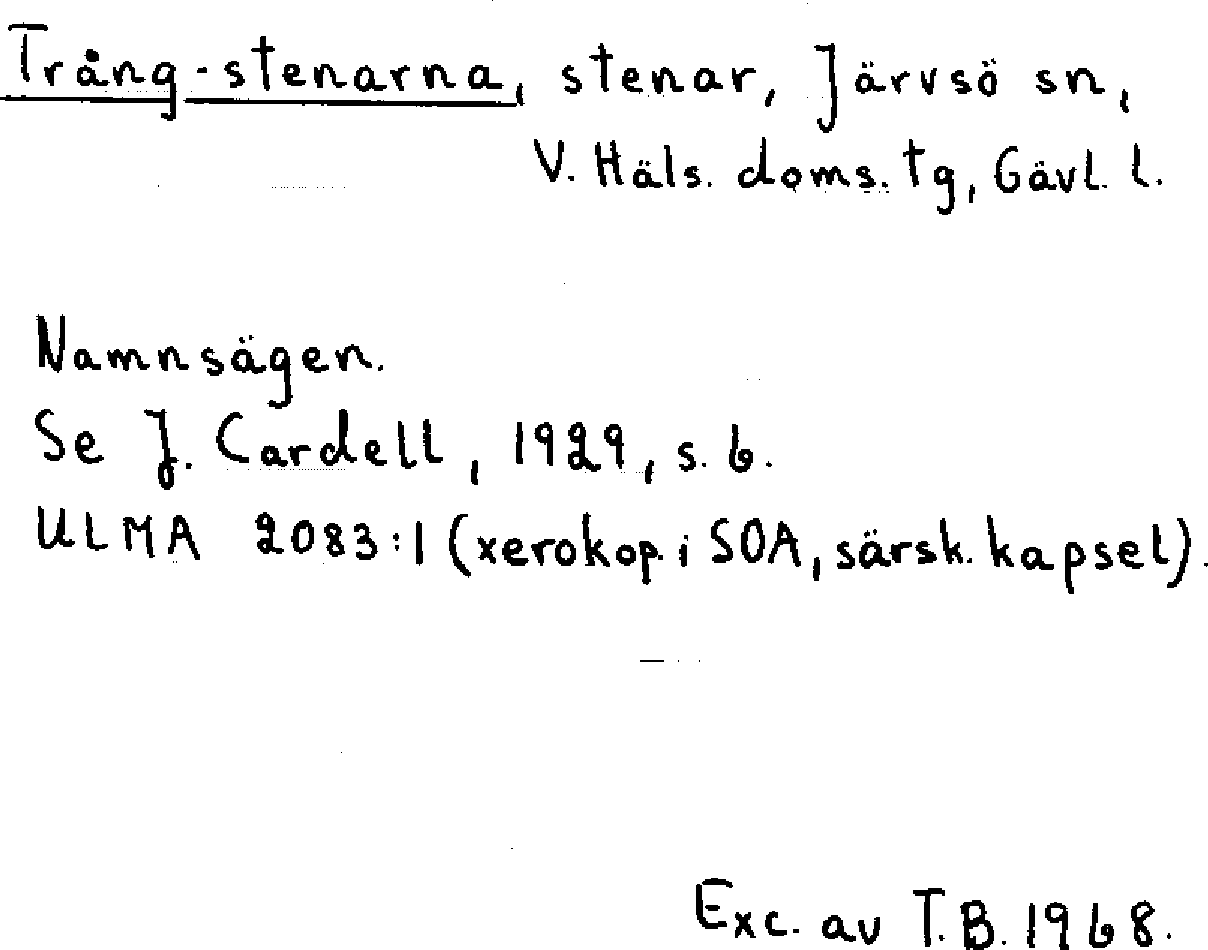 Trång-stenarna, stenar, Järvsö sn,
V. Häls. doms. tg, Gävl. l.
Namnsägen.
Se J. Cardell, 1929, s. 6.
ULMA 2083:1 (xerokop. i SOA, särsk. kapsel).
Exc. av T.B. 1968.